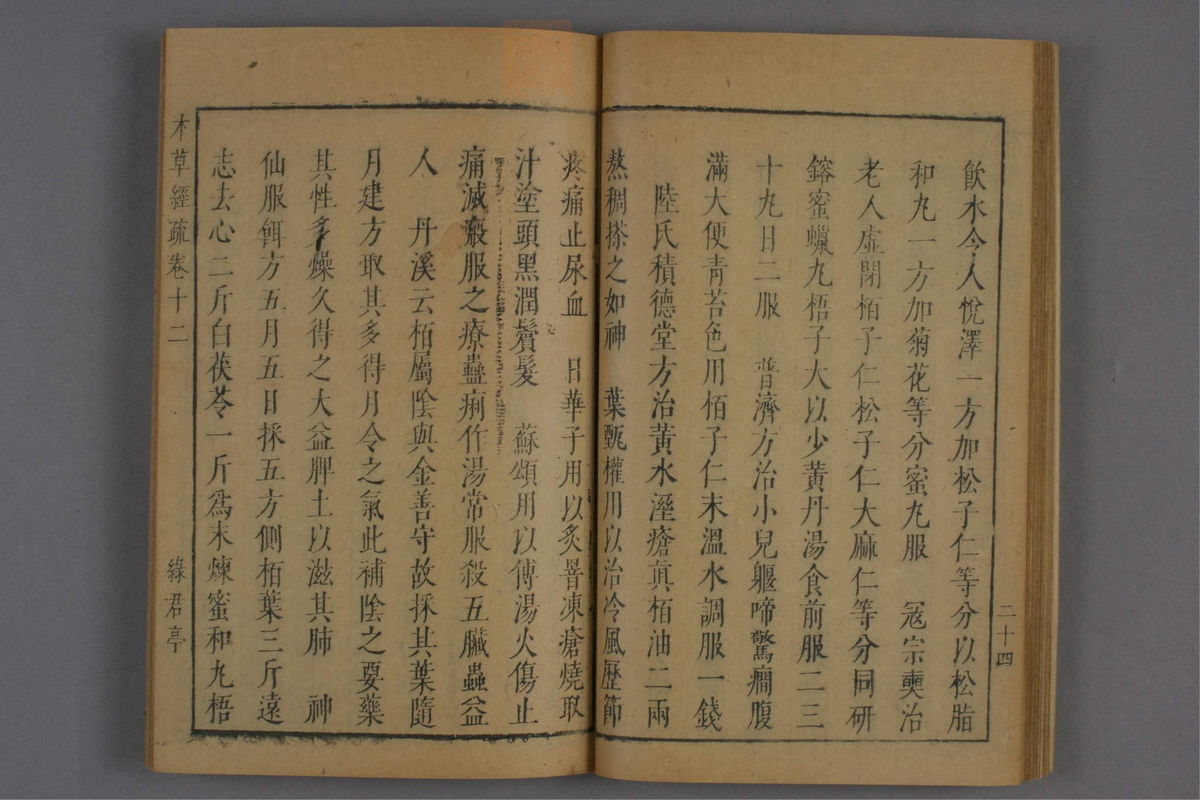 二十四
飲水令人悅澤一方加松子仁等分以松脂
和丸一方加菊花等分蜜丸服　冦宗奭治
老人虛閉栢子仁松子仁大麻仁等分同研
鎔蜜蠟丸梧子大以少黃丹湯食前服二三
十丸日二服　普濟方治小兒軀啼驚癎腹
滿大便靑苔色用栢子仁末溫水調服一錢
陸氏積德堂方治黃水溼瘡眞栢油二兩
熬稠搽之如神　葉甄權用以治冷風歷節
疼痛止尿血　日華子用以炙罯凍瘡燒取
汁塗頭黑潤鬢髮　蘇頌用以傅湯火傷止
痛滅瘢服之療蠱痢作湯常服殺五臟蟲益
人　丹溪云栢屬陰與金善守故採其葉隨
月建方取其多得月令之氣此補陰之要藥
其性多燥久得之大益脾土以滋其肺　神
仙服餌方五月五日採五方側栢葉三斤遠
志去心二斤白茯苓一斤爲末煉蜜和丸梧
本草經疏卷十二
綠君亭